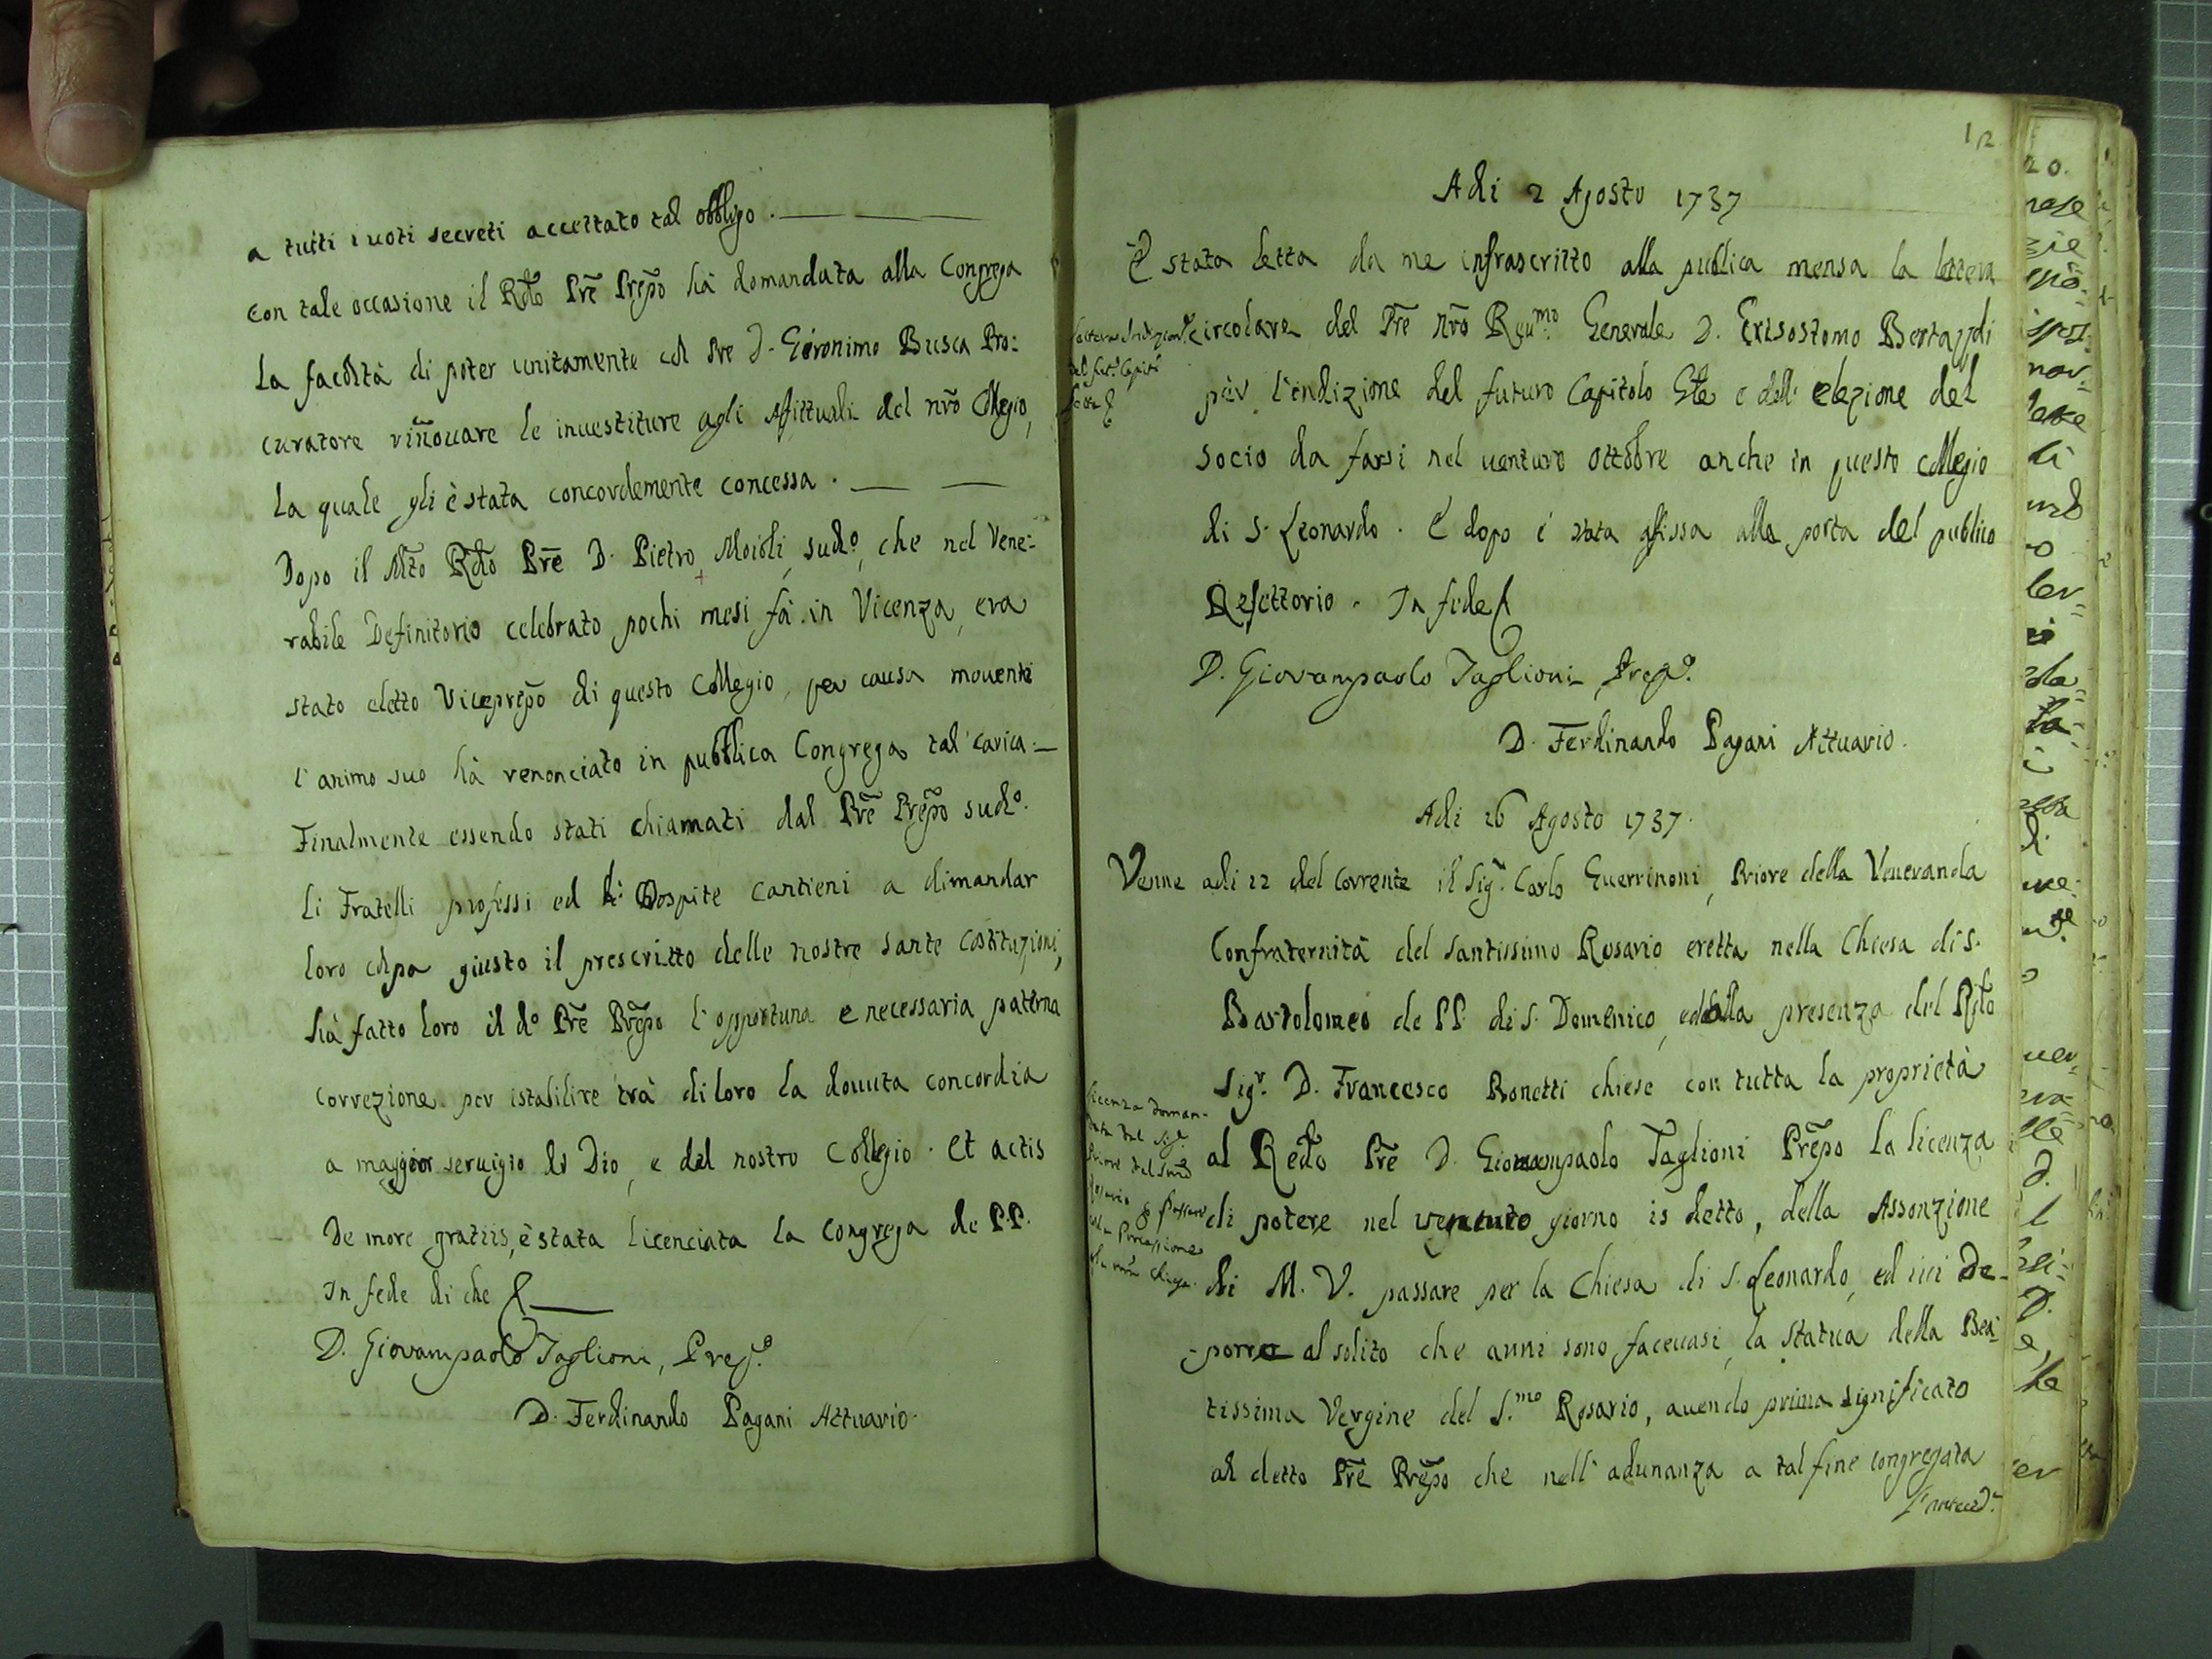 a tutti i uoti secreti accettato tal obbligo.
con tale occasione il Rdo Pre Prepo hà domandata alla Congrega
La facoltà di poter unitamente col Pre D. Gieronimo Busca Pro:
curatore rinouare le inuestiture agli Affittuali del nro Collegio,
La quale gli è stata concordemente concessa.
Dopo il Mto Rdo Pre D. Pietro Moioli, sudo, che nel Vene:
rabile Definitorio celebrato pochi mesi fà in Vicenza, era
stato eletto Viceprepo di questo Collegio, per causa mouenti
l'animo suo hà renonciato in pubblica Congrega tal carica:
Finalmente essendo stati chiamati dal Pre Prepo sudo.
li Fratelli professi ed Ospite Cantieni a dimandar
loro colpa giusto il prescritto delle nostre sante costituzioni,
hà fatto loro il do Pre Prepo l'opportuna e necessaria paterna
correzione per istabilire trà di loro la douuta concordia
a maggior seruigio di Dio, e del nostro Collegio. Et actis
de more gratiis, è stata licenciata la congrega de PP.
In fede di che
D. Giovampaolo Taglioni, Prepo.
D. Ferdinando Pagani Attuario.
12
Adi 2 Agosto 1737
È stata letta da me infrascritto alla publica mensa la lettera
circolare del Pre nro Reumo. Generale D. Crisostomo Bertazzoli
per l'indizione del futuro Capitolo Gle e dell'elezione del
socio da farsi nel uenturo ottobre anche in questo collegio
di S. Leonardo. E dopo è stata affissa alla porta del publico
Refettorio. In fede
D. Giovampaolo Taglioni Prepo.
D. Ferdinando Pagani Attuario.
Adi 26 Agosto 1737.
Venne adi 12 del corrente il Sigr. Carlo Guerrinoni, Priore della Veneranda
Confraternità del Santissimo Rosario eretta nella Chiesa di S.
Bartolomeo de PP. di S. Domenico, ed alla presenza del Rdo
Sigr. D. Francesco Bonetti chiese con tutta la proprietà
Licenza doman-
data dal Sigr.
Priore del Smo
Rosario p passare
colla Porcessione
alla nra Chiesa.
al Redo Pre D. Giovampaolo Taglioni Prepo la licenza
di potere nel venturo giorno 15 detto, della Assonzione
di M. V. passare per la Chiesa di S. Leonardo, ed iui de-
-porre al solito che anni sono faceuasi, la statua della Bea:
tissima Vergine del S.mo Rosario, auendo prima significato
al detto Pre Prepo che nell'adunanza a tal fine congregata